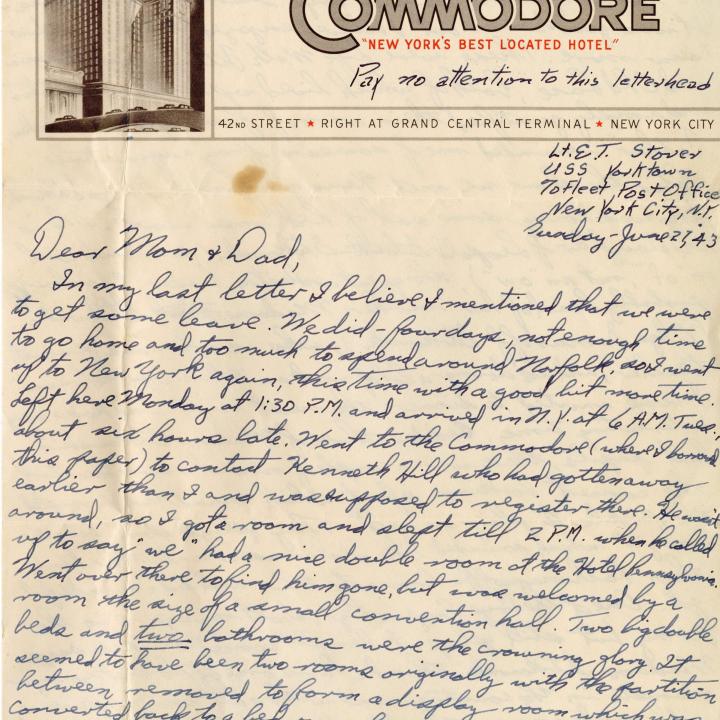 COMMODORE
"NEW YORK'S BEST LOCATED HOTEL"
Pay no attention to this letterhead
42ND STREET ★ RIGHT AT GRAND CENTRAL TERMINAL ★ NEW YORK CITY
Lt. E.T. Stover
USS Yorktown
℅ Fleet Post Office
New York City, N.Y.
Sunday - June 27, '43
Dear Mom & Dad,
In my last letter I believe I mentioned that we were
to get some leave. We did - four days, not enough time
to go home and too much to spend around Norfolk, so I went
up to New York again, this time with a good bit more time.
Left here Monday at 1:30 P.M. and arrived in N.Y. at 6 A.M. Tues.
about six hours late. Went to the Commodore (where I borrowed
this paper) to contact Kenneth Hill who had gotten away
earlier than I and was supposed to register there. He wasn't
around, so I got a room and slept till 2 P.M. when he called
up to say "we" had a nice double room at the Hotel Pennsylvania.
Went over there to find him gone, but was welcomed by a
room the size of a small convention hall. Two big double
beds and two bathrooms were the crowning glory. It
seemed to have been two rooms originally with the partition
between removed to form a display room which was
converted back to a